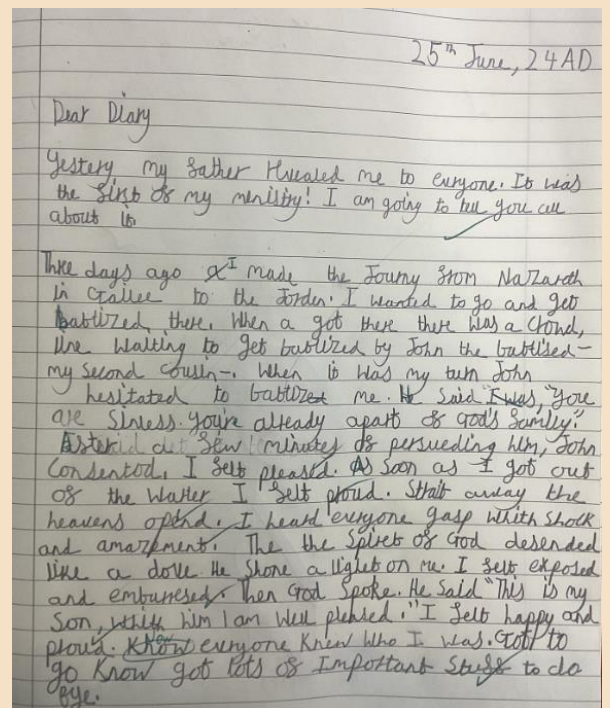 25th June, 24 AD
Dear Diary
Yestery my father revealed me to evryone. It was
the first of my menistry! I am going to tell you all
about it.
Three days ago I made the Journy from Nazareth
in Galilee to the Jorden. I wanted to go and get
babtized there. When a got there there was a crowd,
line waiting to get babtized by John the babtised-
my second cousin-. When it was my turn John
hesitated to babtize me. He Said "You
are Sinless. You're already apart of God's family."
After a few minutes of persueding him, John
Consentod, I felt pleased. As Soon as I got out
of the Watter I felt proud. Strait away the
heavens opend. I heard evryone gasp whith shock
and amazment. The the Spiret of God desended
like a dove. He Shone a light on me. I felt exposed
and emburresed. Then God Spoke. He Said "This is my
Son, whith him I am Well plensed." I felt happy and
proud. Know Now evryone Knew Who I was. Gott to
go Know got lots of Important Stuff to do
Bye.